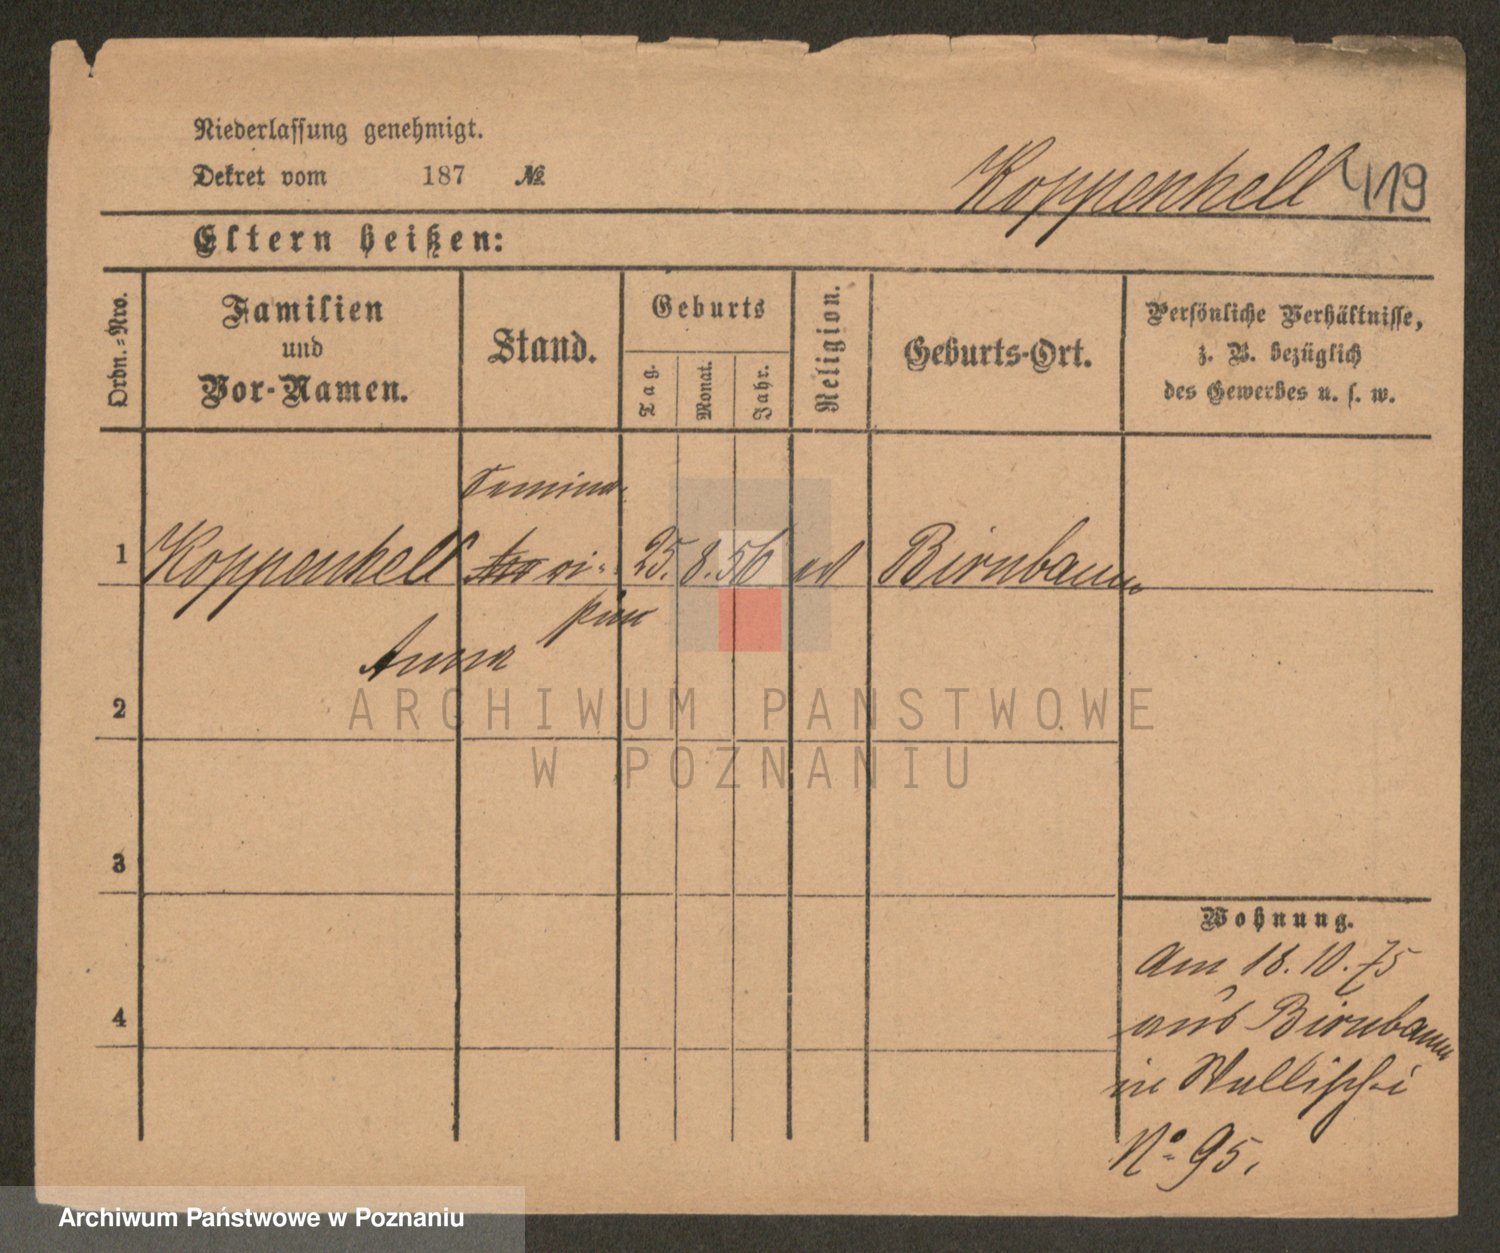 Niederlassung genehmigt.
Dekret vom 187 №
Koppenhell 119
Eltern heißen:
Ordn.=Nro.
Familien
und
Vor-Namen.
Stand.
Geburts
Tag.
Monat.
Jahr.
Religion.
Geburts-Ort.
Persönliche Verhältnisse,
z. B. bezüglich
des Gewerbes u. s. w.
Semina-
1 Koppenhell ri- 25. 8. 56 ev Birnbaum
Anna
2
3
4
Wohnung.
Am 18. 10. 75
aus Birnbaum
in Wallischei
No 95.
ARCHIWUM PAŃSTWOWE
W POZNANIU
Archiwum Państwowe w Poznaniu